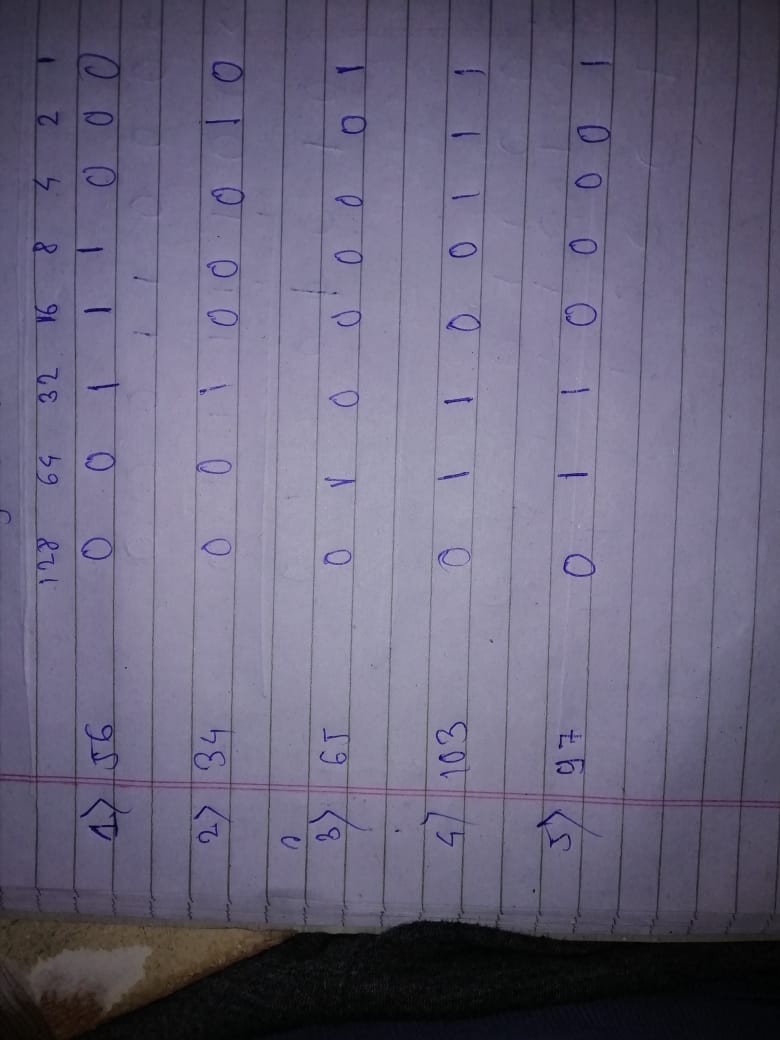 128 64 32 16 8 4 2 1
1> 56 0 0 1 1 1 0 0 0
2> 34 0 0 1 0 0 0 1 0
3> 65 0 1 0 0 0 0 0 1
4> 103 0 1 1 0 0 1 1 1
5> 97 0 1 1 0 0 0 0 1